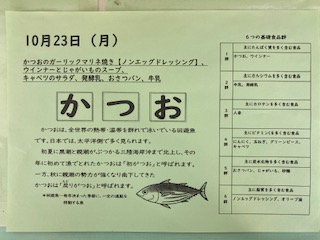 10月23日（月）
かつおのガーリックマリネ焼き【ノンエッグドレッシング】、
ウインナーとじゃがいものスープ、
キャベツのサラダ、発酵乳、おさつパン、牛乳
かつお
かつおは、全世界の熱帯・温帯を群れで泳いでいる回遊魚
です。日本では、太平洋側で多く見られます。
初夏に黒潮と親潮がぶつかる三陸海岸沖まで北上し、その
年に初めて漁でとれたかつおは「初がつお」と呼ばれます。
一方、秋に親潮の勢力が強くなり南下してきた
かつおは「戻りがつお」と呼ばれます。
６つの基礎食品群
1群
主にたんぱく質を多く含む食品
かつお、ウインナー
2群
主にカルシウムを多く含む食品
牛乳、発酵乳
3群
主にカロテンを多く含む食品
人参
4群
主にビタミンCを多く含む食品
にんにく、玉ねぎ、グリンピース、
キャベツ
5群
主に炭水化物を多く含む食品
おさつパン、じゃがいも、砂糖
6群
主に脂質を多く含む食品
ノンエッグドレッシング、オリーブ油